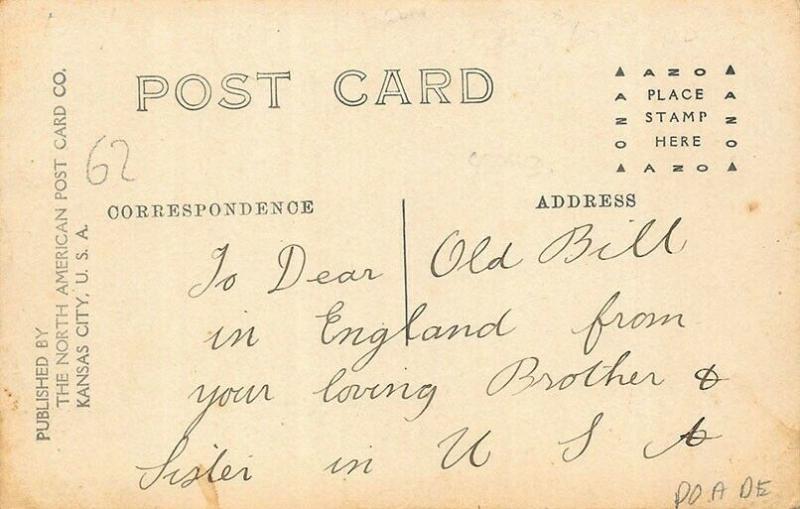 POST CARD
▲ AZO ▲
AZO PLACE STAMP HERE AZO
▲ AZO ▲
62
CORRESPONDENCE
ADDRESS
To Dear Old Bill
in England from
your loving Brother &
Sister in U S A
PUBLISHED BY
THE NORTH AMERICAN POST CARD CO.
KANSAS CITY, U. S. A.